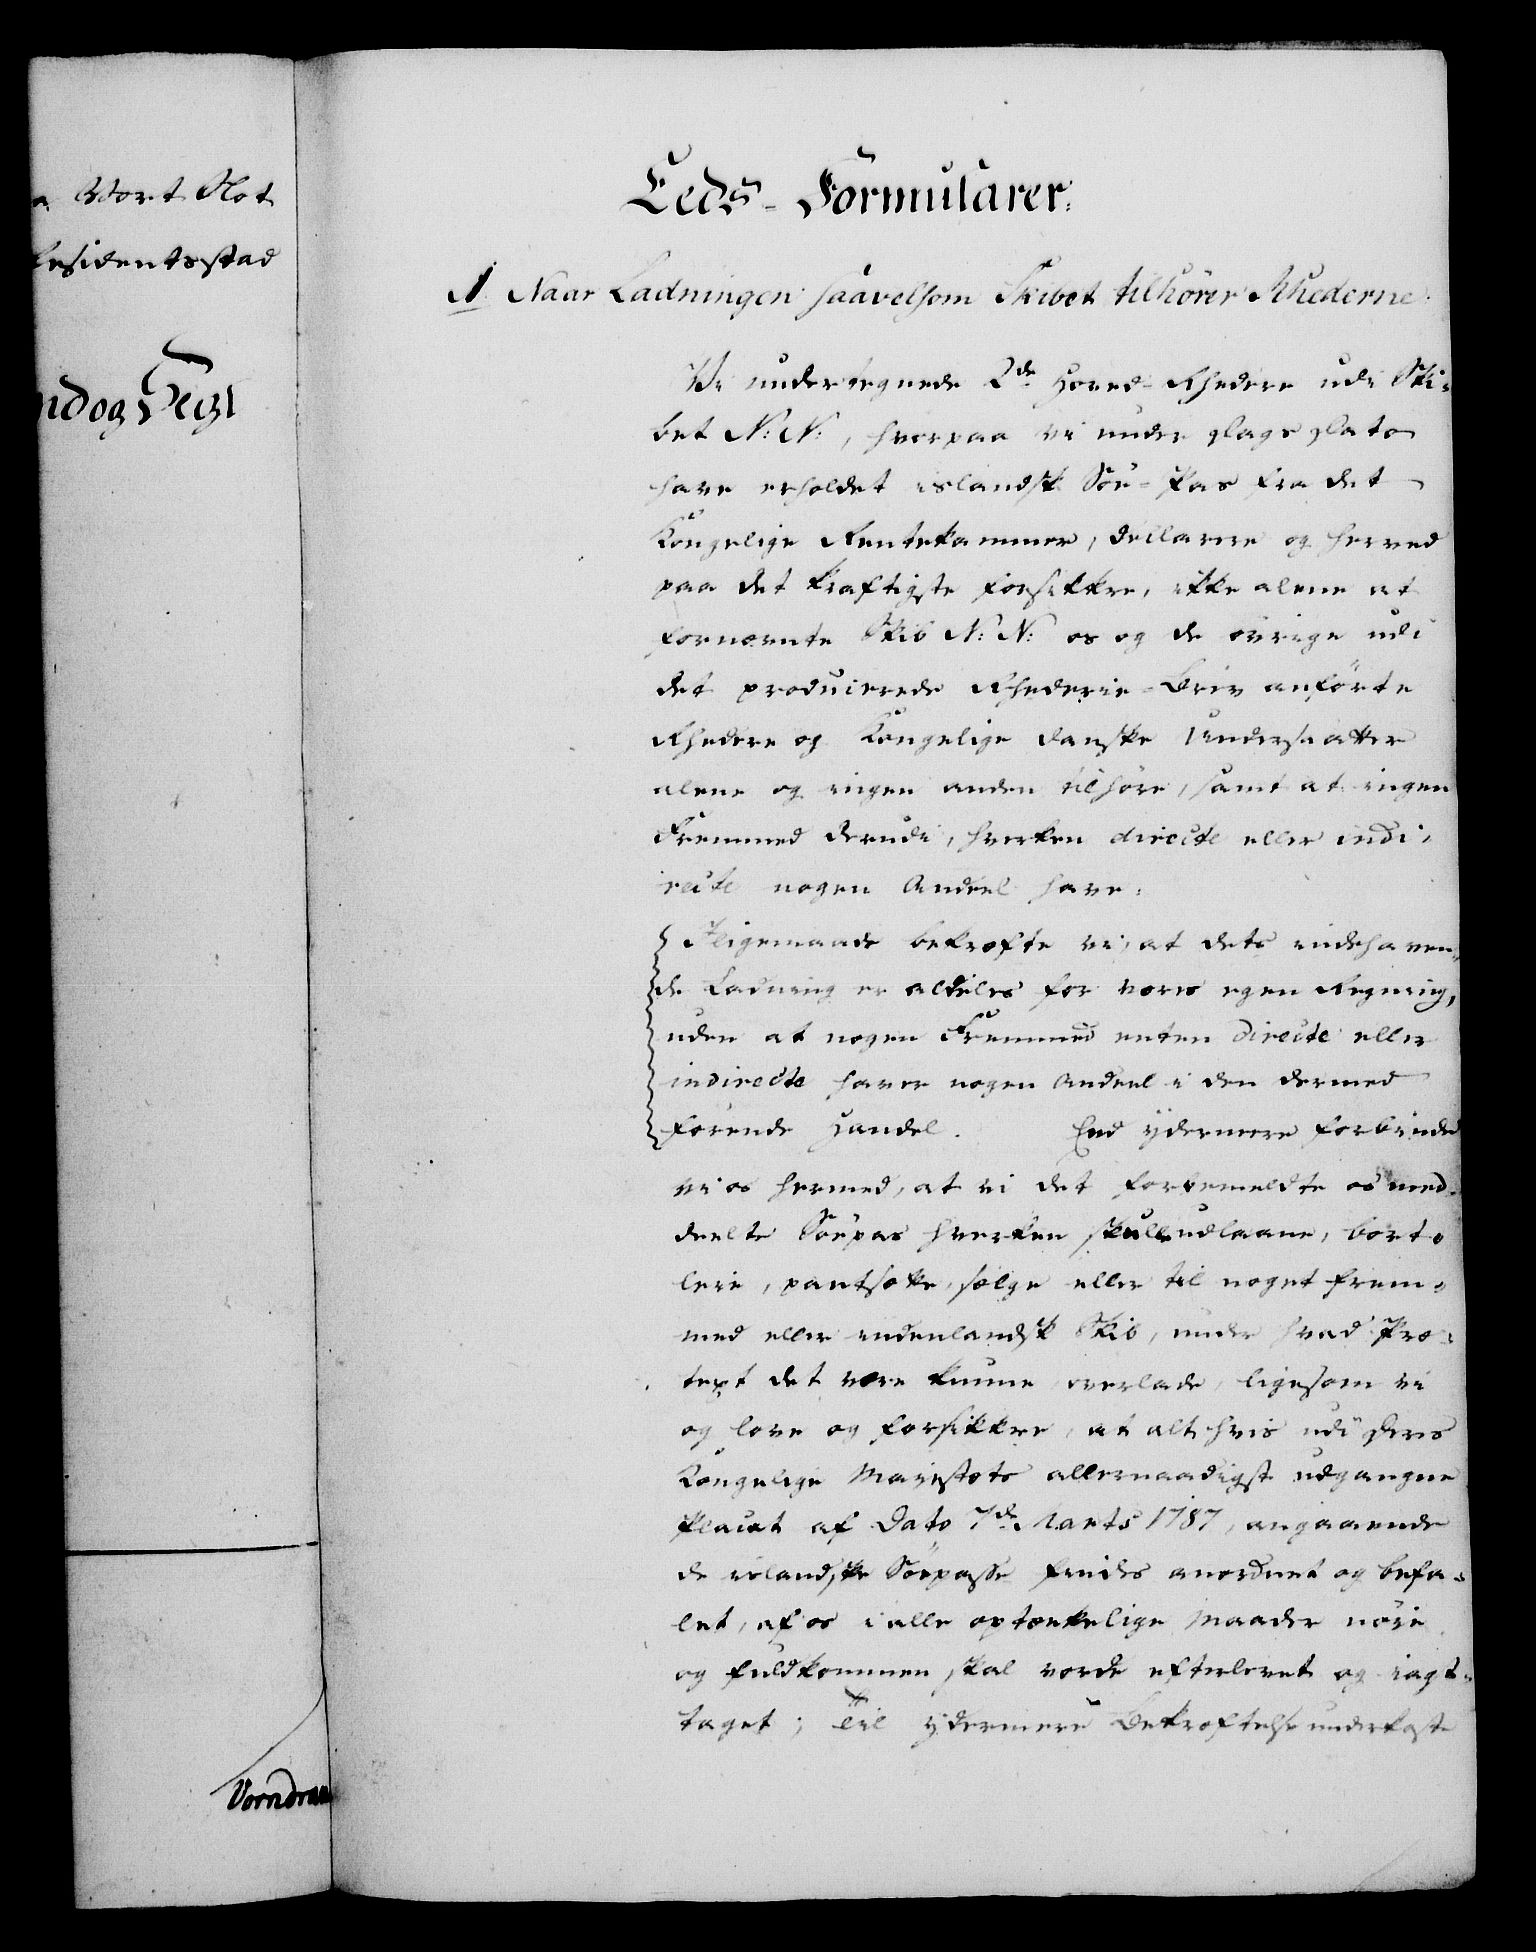 Vort Slot
Residentsstad
nd og Seigl
Vorndran
Eeds-Formularer:
1. Naar Ladningen saavelsom Skibet tilhörer Rhederne.
Vi undertegnede 2de Hoved-Rhedere udi Ski-
bet N: N:, hvorpaa vi under Dags Dato
have erholdet islandsk Söe-Pas fra det
Kongelige Rentekammer, declarere og herved
paa det kraftigste forsikkre, ikke alene at
fornævnte Skib N: N: os og de övrige udi
det producerede Rhederie-Brev anförte
Rhedere og Kongelige danske Undersaatter
alene og ingen anden tilhöre, samt at ingen
Fremmed derudi, hverken directe eller indi-
recte nogen Andeel have.
Ligemaade bekræfte vi, at dets indehaven-
de Ladning er aldeles for vores egen Regning,
uden at nogen Fremmed enten directe eller
indirecte haver nogen Andeel i den dermed
förende Handel. End ydermere forbinde
vi os hermed, at vi det forbemeldte os med-
deelte Söepas hverken skulle udlaane, bort-
leie, pantsætte, sælge eller til noget frem-
med eller indenlandsk Skib, under hvad Præ-
text det være kunne, overlade, ligesom vi
og love og forsikkre, at alt hvis udi Deres
Kongelige Majestæts allernaadigst udgangne
Placat af Dato 7de Marts 1787, angaaende
de islandske Söepasse findes anordnet og befa-
let, af os i alle optænkelige Maader nöie
og fuldkommen skal vorde efterlevet og iagt-
taget; Til ydermere Bekræftelse underkaste